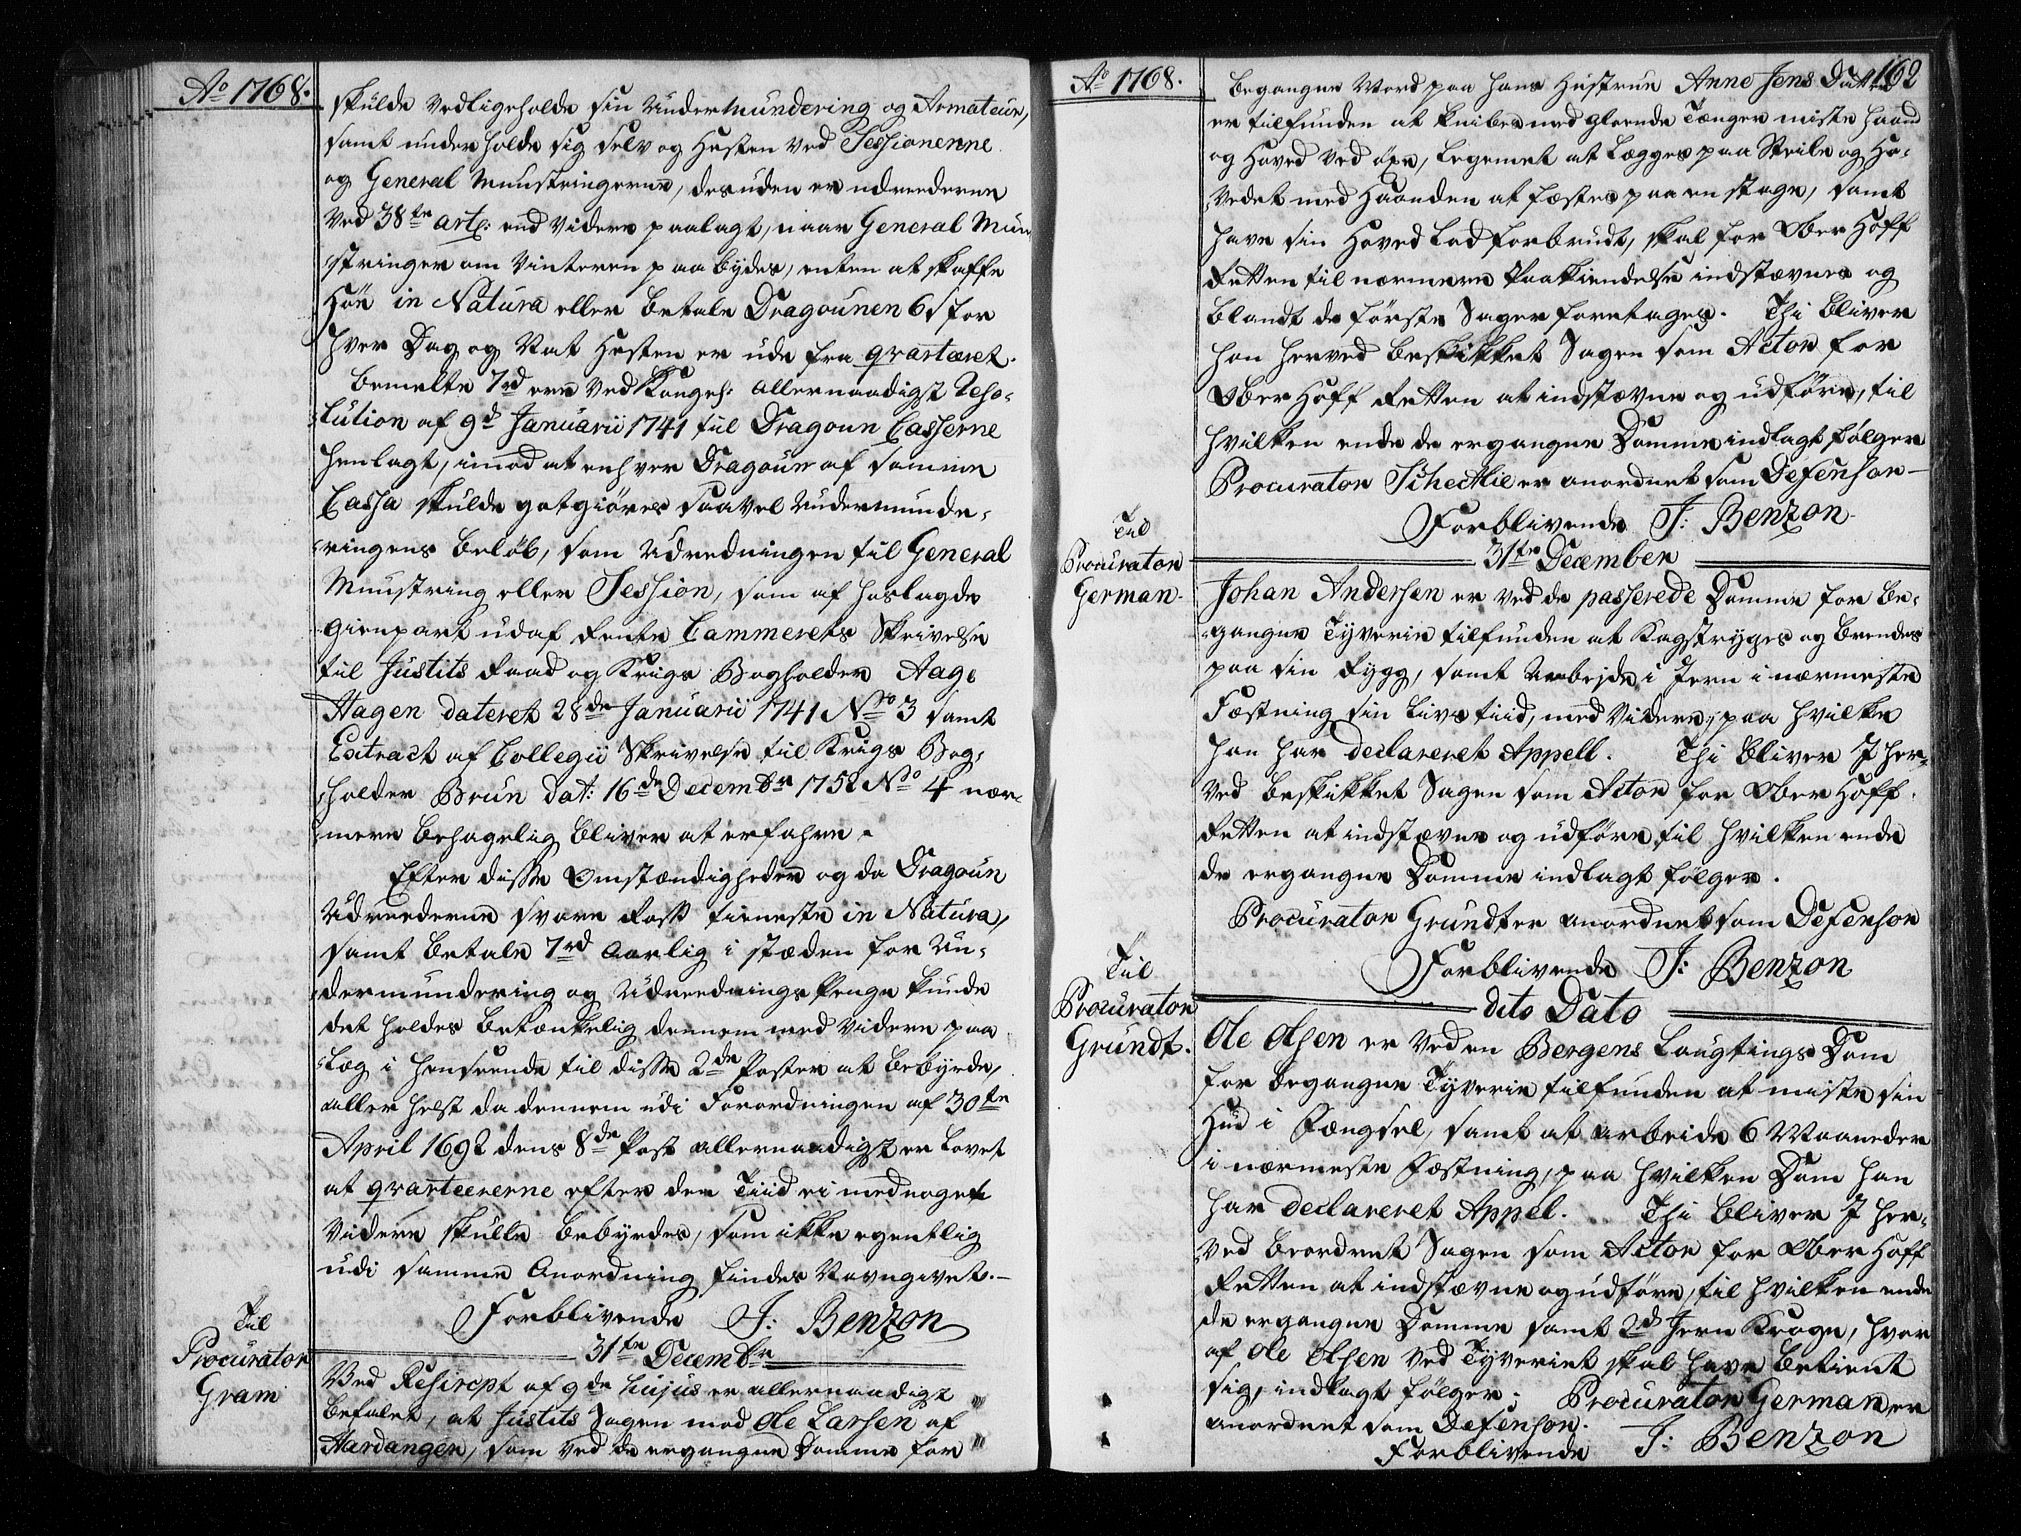 Ao 1768.
skulde vedligeholde sin Undermundering og Armateur,
samt underholde sig selv og Hesten ved Sessionerne
og General Munstringerne, desuden er udreederne
ved 38te art: end videre paalagt, naar General Mun-
stringer om Vinteren paabydes, enten at skaffe
Höe in Natura eller betale Dragounen 6 s for
hver Dag og Nat Hesten er ude fra qvarteret.
bemelte 7 rd ere ved Kongel: allernaadigst Reso-
lution af 9d Januarii 1741 til Dragoun Casserne
henlagt, imod at enhver Dragoun af samme
Cassa skulde gotgiöres saavel Undermunde-
ringens beløb, som Udredningen til General
Munstring eller Session, som af hoslagde
Gienpart udaf Rente Cammerets Skrivelse
til Justits Raad og Krigs Bogholder Aage
Hagen dateret 28de Januarii 1741 No 3 samt
Extract af Collegii Skrivelse til Krigs Bog-
holder Brun dat: 16de Decembr 1752 No 4 nær-
mere behagelig bliver at erfahre.
Efter disse Omstændigheder og da Dragoun
Udreederne svare Ross tieneste in Natura,
samt betale 7rd aarlig i stæden for Un-
dermundering og Udreednings Penge kunde
det holdes betænkelig dennem med videre paa
læg i henseende til disse 2de Poster at bebyrde,
aller helst da dennem udi Forordningen af 30te
April 1692 dens 8de Post allernaadigst er lovet
at qvarteererne efter den Tiid ei med noget
videre skulle bebyrdes, som ikke egentlig
udi samme Anordning findes Navngivet.
Forblivende J: Benzon
31te Decembr
Til
Procurator
Gram
Ved Rescript af 9de hujus er allernaadigst
befalet, at Justits Sagen mod Ole Larsen af
Hardanger, som ved de ergangne Domme for
Ao 1768.
162
begangne Mord paa hans Hustrue Anne Jens Datter
er tilfunden at knibes med gloende Tænger miste haand
og Hoved ved öxe, legemet at lægges paa Steile og Ho-
vedet med Haanden at fæstes paa en stage, samt
have sin Hoved Lod forbrudt, skal for Ober Hoff
Retten til nærmere Paakiendelse indstævnes og
blandt de förste Sager foretages. Thi bliver
han herved beskikket Sagen som Actor for
Ober Hoff Retten at indstævne og udföre, til
hvilken ende de ergangne Domme indlagt følger
Procurator Schectlie er anordnet som Defensor
Forblivende J: Benzon
31te December
Til
Procurator
German
Johan Andersen er ved de passerede Domme for be-
gangne Tyverie tilfunden at Kagstryges og brendes
paa sin Rygg, samt Arbejde i Jern i nærmeste
Fæstning sin Livs tiid, med videre, paa hvilke
han har declareret Appell. Thi bliver J her-
ved beskikket Sagen som Actor for Ober Hoff
Retten at indstævne og udföre, til hvilken ende
de ergangne Domme indlagt følger.
Procurator Grundt er anordnet som Defensor
Forblivende J: Benzon
dito Dato
Til
Procurator
Grundt.
Ole Olsen er ved en Bergens Laugtings Dom
for begangne Tyverie tilfunden at miste sin
Hud i Fængsel, samt at arbeide 6 Maaneder
i nærmeste Fæstning, paa hvilken Dom han
har declareret Appel. Thi bliver J her-
ved beordret Sagen som Actor for Ober Hoff
Retten at indstævne og udföre, til hvilken ende
de ergangne Domme samt 2d Jern Kroge, hvor
af Ole Olsen ved Tyveriet skal have betient
sig, indlagt følger; Procurator German er
anordnet som Defensor.
Forblivende J: Benzon